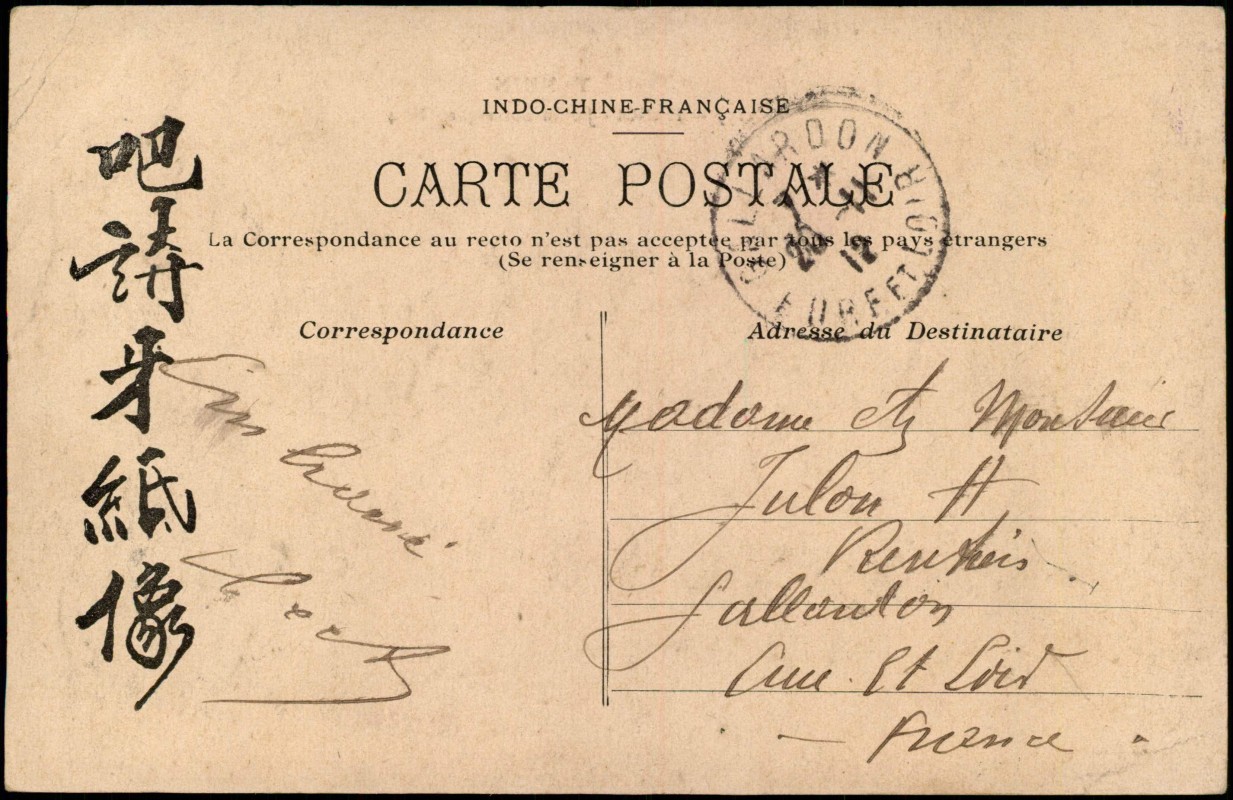 INDO-CHINE-FRANÇAISE
CARTE POSTALE
La Correspondance au recto n'est pas acceptée par tous les pays étrangers
(Se renseigner à la Poste)
吧請牙紙像
Correspondance
Adresse du Destinataire
GALLARDON
EURE ET LOIR
7
20 -11
12
Madame et Monsieur
Julou H
Rentiers
Gallardon
Eure Et Loir
France